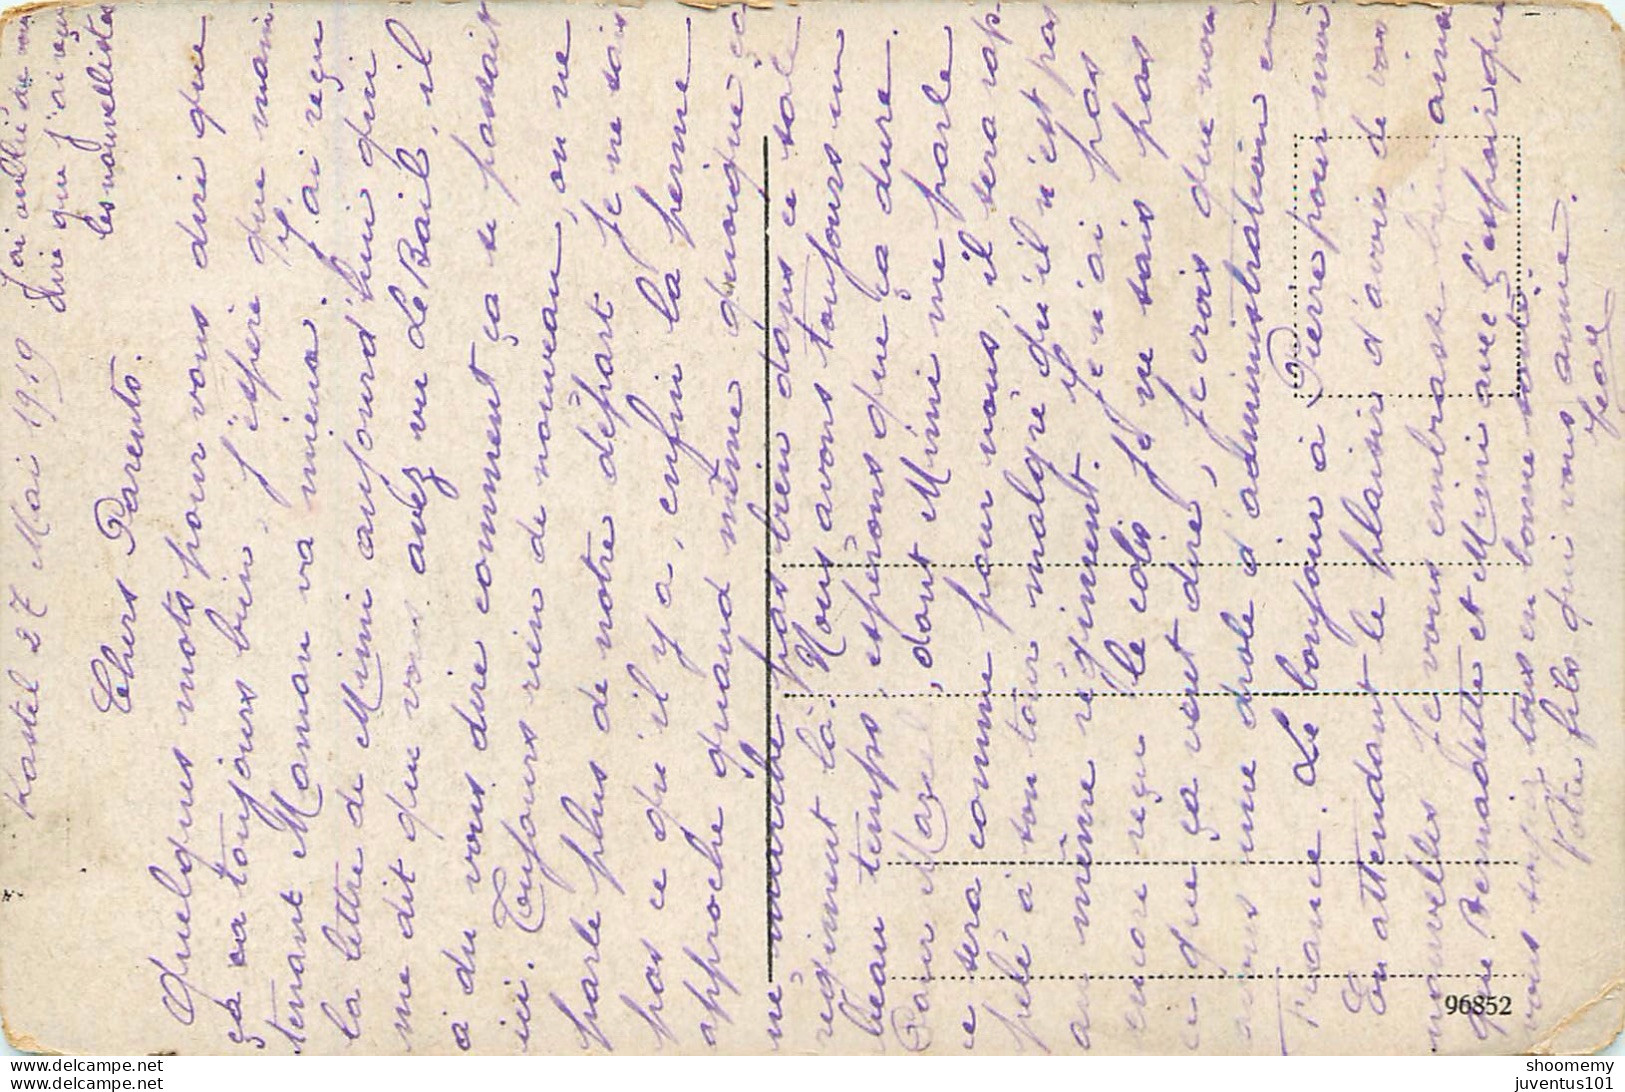 Kastel 27 Mai 1919
J'ai oublié de vous
dire que j'ai reçu
les nouvellistes
Chers Parents.
Quelques mots pour vous dire que
ça va toujours bien, j'espère que main-
tenant Maman va mieux. J'ai reçu
la lettre de Mimi aujourd'hui qui
me dit que vous avez vu Le Bail, il
a du vous dire comment ça se passait
ici. Toujours rien de nouveau, on ne
parle plus de notre départ je ne sais
pas ce qu'il y a, enfin la perme
approche quand même quoique ça
ne marche pas bien dans ce sale
régiment là. Nous avons toujours un
beau temps, espérons que ça dure.
Pour Mazé, dont Mimi me parle
ce sera comme pour nous, il sera rap-
pelé à son tour malgré qu'il n'est pas
au même régiment. Je n'ai pas
encore reçu le colis je ne sais pas
ce que ça veut dire, je crois que nous
avons une drole d'administration en
France. Le bonjour à Pierre pour moi
En attendant le plaisir d'avoir de vos
nouvelles je vous embrasse bien ainsi
que Bernadette et Mimi avec l'espoir que
vous soyez tous en bonne santé
Votre fils qui vous aime.
Jean
96852
shoomemy
juventus101